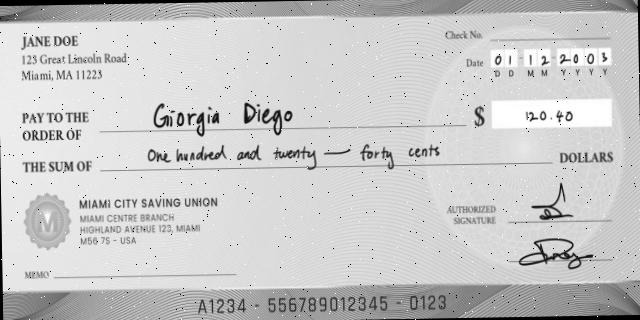 JANE DOE
123 Great Lincoln Road
Miami, MA 11223
Check No.
Date 01 12 2003
D D M M Y Y Y Y
PAY TO THE ORDER OF Giorgia Diego $ 120.40
THE SUM OF One hundred and twenty — forty cents DOLLARS
M
MIAMI CITY SAVING UNION
MIAMI CENTRE BRANCH
HIGHLAND AVENUE 123, MIAMI
M56 7S - USA
AUTHORIZED SIGNATURE
MEMO
A1234 - 556789012345 - 0123